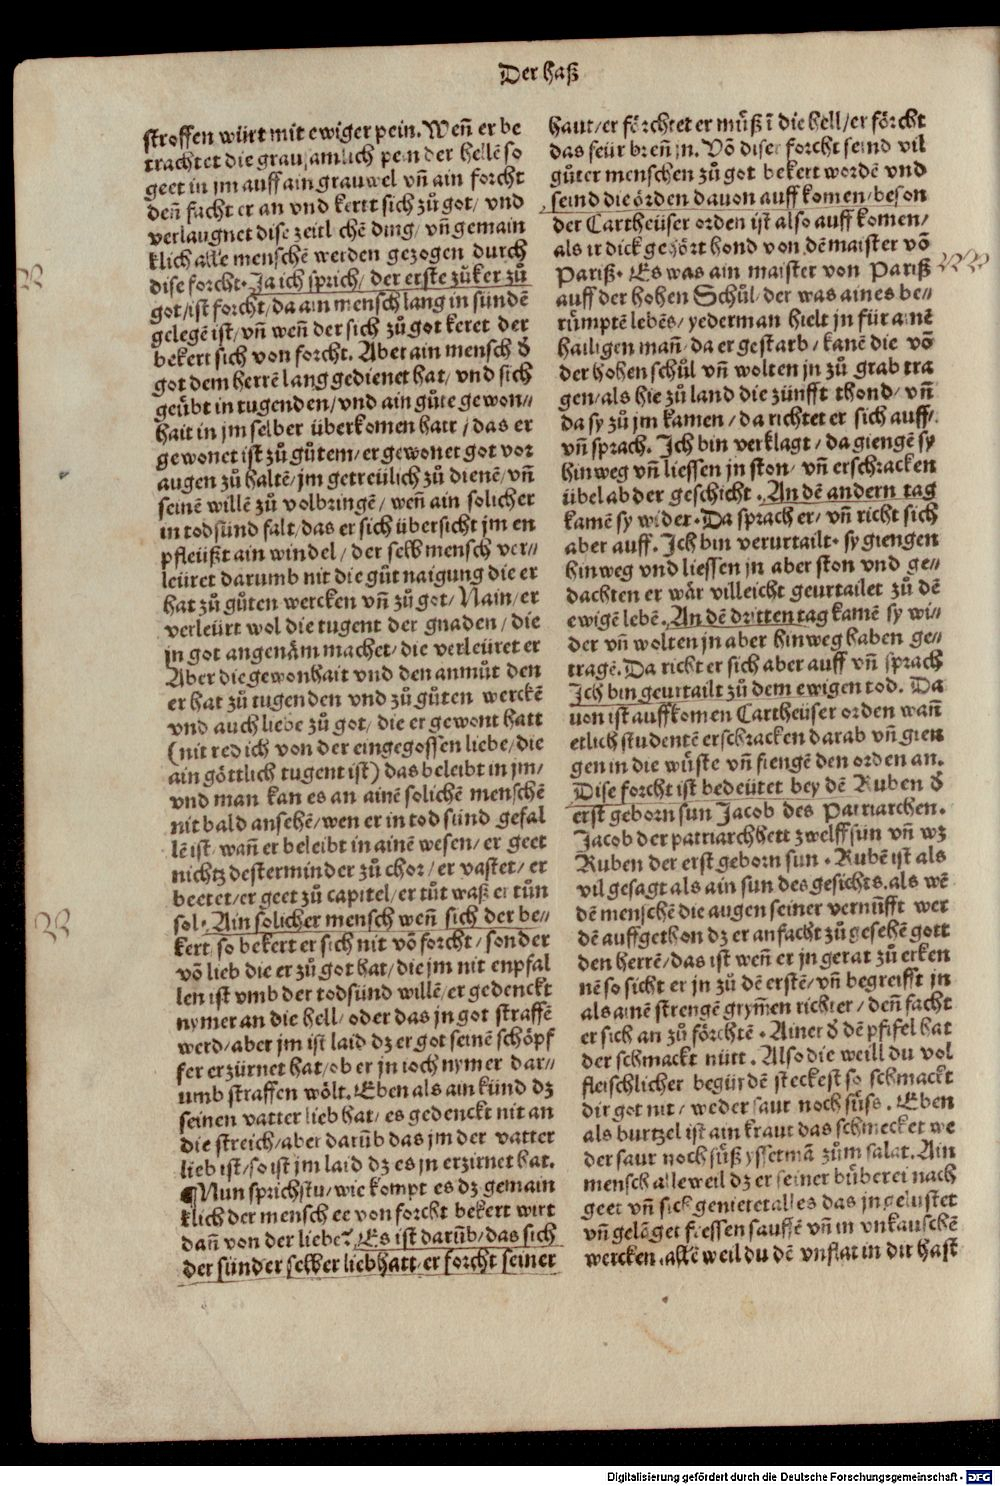 Der haß
stroffen würt mit ewiger pein. Weñ er be
trachtet die grausamlich pein der hellē so
geet in jm auff ain grauwel vñ ain forcht
deñ facht er an vnd kertt sich zů got/ vnd
verlaugnet dise zeitlichē ding/ vñ gemain
klich alle menschē werden gezogen durch
dise forcht. Ja ich sprich/ der erste zůker zů
got/ist forcht/da ain mensch lang in sündē
gelegē ist/ vñ weñ der sich zů got keret der
bekert sich von forcht. Aber ain mensch d̄
got dem herrē lang gedienet hat/ vnd sich
geübt in tugenden/vnd ain gůte gewon⸗
hait in jm selber überkomen hatt/ das er
gewonet ist zů gůtem/er gewonet got vor
augen zů haltē/jm getreülich zů dienē/vñ
seinē willē zů volbringē/ weñ ain solicher
in todsünd falt/das er sich übersicht jm en
pfleüßt ain windel/ der selb mensch ver⸗
leüret darumb nit die gůt naigung die er
hat zů gůten wercken vñ zů got/ Nain/er
verleürt wol die tugent der gnaden/ die
jn got angenäm machet/die verleüret er
Aber die gewonhait vnd den anmůt den
er hat zů tugenden vnd zů gůten werckē
vnd auch liebe zů got/ die er gewont hatt
(nit red ich von der eingegossen liebe/die
ain göttlich tugent ist) das beleibt in jm/
vnd man kan es an ainē solichē menschē
nit bald ansehē/wen er in todsünd gefal
lē ist/ wañ er beleibt in ainē wesen/ er geet
nichtz desterminder zů chor/er vastet/ er
beetet/er geet zů capitel/er tůt waß er tůn
sol. Ain solicher mensch weñ sich der be⸗
kert/so bekert er sich nit vō forcht/sonder
vō lieb die er zů got hat/die jm nit enpfal
len ist vmb der todsünd willē/er gedenckt
nymer an die hell/ oder das jn got straffē
werd/aber jm ist laid dz er got seinē schöpf
fer erzürnet hat/ob er jn ioch nymer dar⸗
umb straffen wölt. Eben als ain künd dz
seinen vatter lieb hat/ es gedenckt nit an
die streich/aber darūb das jm der vatter
lieb ist/so ist jm laid dz es jn erzirnet hat.
¶Nun sprichstu/wie kompt es dz gemain
klich der mensch ee von forcht bekert wirt
dañ von der liebe? Es ist darūb/das sich
der sünder selber liebhatt/er forcht seiner
haut/er förchtet er můß ī die hell/er förcht
das feür breñ jn. Vō diser forcht seind vil
gůter menschen zů got bekert wordē vnd
seind die örden dauon auffkomen/beson
der Cartheüser orden ist also auffkomen/
als ir dick gehört hond von dē maister vō
Pariß. Es was ain maister von Pariß
auff der hohen Schůl/der was aines be⸗
rümptē lebēs/yederman hielt jn für ainē
hailigen mañ/da er gestarb/kanē die vō
der hohen schůl vñ wolten jn zů grab tra
gen/als hie zů land die zünfft thond/ vñ
da sy zů jm kamen/da richtet er sich auff/
vñ sprach. Ich bin verklagt/ da giengē sy
hinweg vñ liessen jn ston/ vñ erschracken
übel ab der geschicht. An dē andern tag
kamē sy wider. Da sprach er/ vñ richt sich
aber auff. Ich bin verurtailt. sy giengen
hinweg vnd liessen jn aber ston vnd ge⸗
dachten er wär villeicht geurtailet zů dē
ewigē lebē. An dē dritten tag kamē sy wi⸗
der vñ wolten jn aber hinweg haben ge⸗
tragē. Da richt er sich aber auff vñ sprach
Ich bin geurtailt zů dem ewigen tod. Da
uon ist auffkomen Cartheüser orden wañ
etlich studentē erschracken darab vñ gien
gen in die wůste vñ fiengē den orden an.
Dise forcht ist bedeütet bey dē Ruben d̄
erst geborn sun Jacob des Patriarchen.
Jacob der patriarch hett zwelff sün vñ wz
Ruben der erst geborn sun. Rubē ist als
vil gesagt als ain sun des gesichts. als wē
dē menschē die augen seiner vernūfft wer
dē auffgethon dz er anfacht zů gesehē gott
den herrē/das ist weñ er jn gerat zů erken
nē so sicht er jn zů dē erstē/ vñ begreifft jn
als ainē strengē grym̄en richter/ deñ facht
er sich an zů förchtē. Ainer d̄ dē pfifel hat
der schmackt nütt. Also die weill du vol
fleischlicher begürdē steckest so schmackt
dir got nit/ weder saur noch süß. Eben
als burtzel ist ain kraut das schmecket we
der saur noch süß yssetmā zům salat. Ain
mensch alleweil dz er seiner bůberei nach
geet vñ sich genietet alles das jn gelustet
vñ gelāget fressen sauffē vñ in vnkauschē
wercken. allē weil du dē vnflat in dir hast
Digitalisierung gefördert durch die Deutsche Forschungsgemeinschaft - DFG